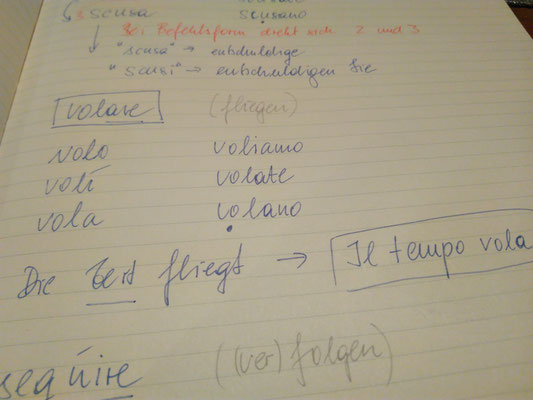 3 scusa scusano
Bei Befehlsform dreht sich 2 und 3
"scusa" → entschuldige
"scusi" → entschuldigen Sie
volare (fliegen)
volo voliamo
voli volate
vola volano
Die Zeit fliegt → Il tempo vola
seguire ((ver)folgen)